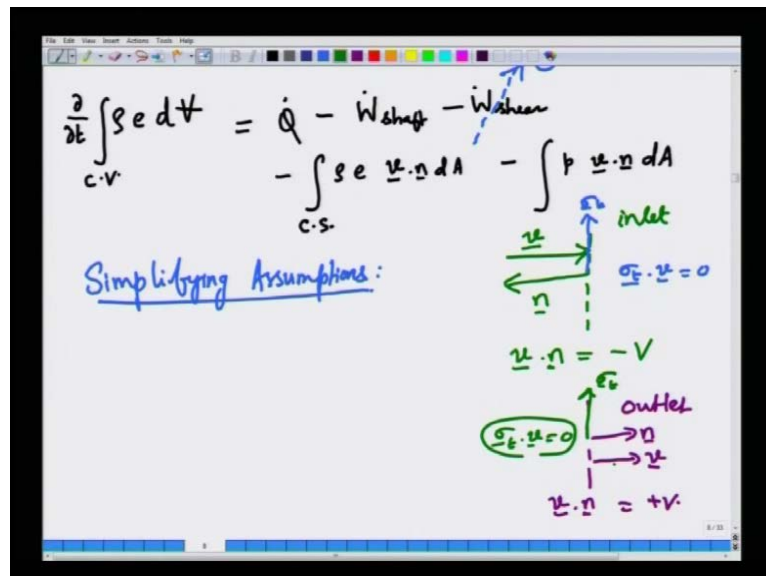 File Edit View Insert Actions Tools Help
∂/∂t ∫ ρ e d∀ = Q̇ − Ẇshaft − Ẇshear
C.V.
− ∫ ρ e v.n dA − ∫ p v.n dA
C.S.
Simplifying Assumptions:
σt inlet
v
σt . v = 0
n
v . n = − V
σt
outlet
σt . v = 0
n
v
v . n = +V.
8/33
8